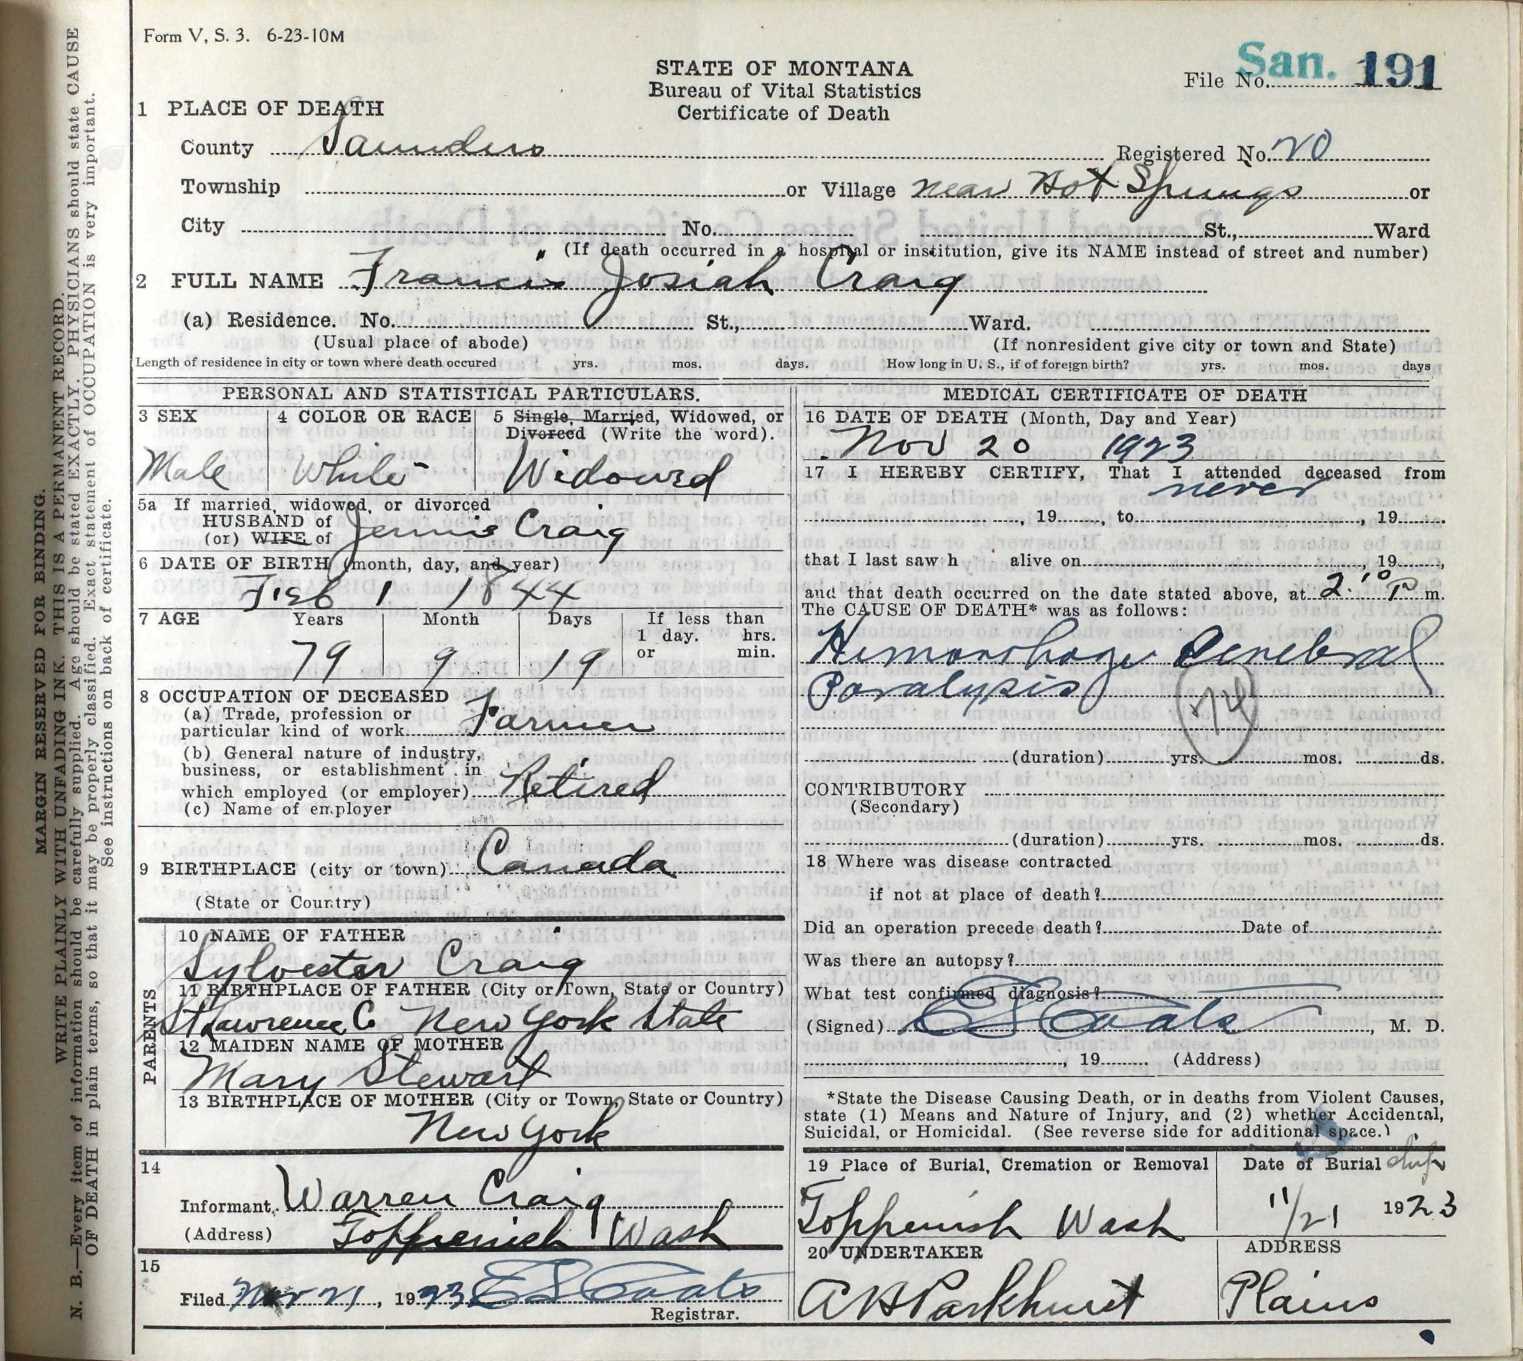 Form V, S. 3. 6-23-10M
STATE OF MONTANA
Bureau of Vital Statistics
Certificate of Death
File No. San. 191
1 PLACE OF DEATH
County Saunders Registered No. 20
Township or Village near Hot Springs or
City No. St., Ward
(If death occurred in a hospital or institution, give its NAME instead of street and number)
2 FULL NAME Francis Josiah Craig
(a) Residence. No. St., Ward.
(Usual place of abode) (If nonresident give city or town and State)
Length of residence in city or town where death occured yrs. mos. days. How long in U. S., if of foreign birth? yrs. mos. days
PERSONAL AND STATISTICAL PARTICULARS.
3 SEX 4 COLOR OR RACE 5 Single, Married, Widowed, or
Divorced (Write the word).
Male White Widowed
5a If married, widowed, or divorced
HUSBAND of
(or) WIFE of Jennie Craig
6 DATE OF BIRTH (month, day, and year)
Feb 1 1844
7 AGE Years Month Days If less than
1 day. hrs.
or min.
79 9 19
8 OCCUPATION OF DECEASED
(a) Trade, profession or
particular kind of work Farmer
(b) General nature of industry,
business, or establishment in
which employed (or employer) Retired
(c) Name of employer
9 BIRTHPLACE (city or town) Canada
(State or Country)
PARENTS
10 NAME OF FATHER
Sylvester Craig
11 BIRTHPLACE OF FATHER (City or Town, State or Country)
St Lawrence C New York State
12 MAIDEN NAME OF MOTHER
Mary Stewart
13 BIRTHPLACE OF MOTHER (City or Town, State or Country)
New York
14
Informant Warren Craig
(Address) Toppenish Wash
15
Filed Nov 21, 1923 E S Coats
Registrar.
MEDICAL CERTIFICATE OF DEATH
16 DATE OF DEATH (Month, Day and Year)
Nov 20 1923
17 I HEREBY CERTIFY, That I attended deceased from
never
, 19 , to , 19
that I last saw h alive on 19
and that death occurred on the date stated above, at 2:10 P m.
The CAUSE OF DEATH* was as follows:
Hemorrhage Cerebral
Paralysis
74
(duration) yrs. mos. ds.
CONTRIBUTORY
(Secondary)
(duration) yrs. mos. ds.
18 Where was disease contracted
if not at place of death?
Did an operation precede death? Date of
Was there an autopsy?
What test confirmed diagnosis?
(Signed) E S Coats, M. D.
, 19 (Address)
*State the Disease Causing Death, or in deaths from Violent Causes,
state (1) Means and Nature of Injury, and (2) whether Accidental,
Suicidal, or Homicidal. (See reverse side for additional space.)
19 Place of Burial, Cremation or Removal Date of Burial
Toppenish Wash 11/21 1923
20 UNDERTAKER ADDRESS
A H Parkhurst Plains
MARGIN RESERVED FOR BINDING.
WRITE PLAINLY WITH UNFADING INK. THIS IS A PERMANENT RECORD.
N. B.—Every item of information should be carefully supplied. Age should be stated EXACTLY. PHYSICIANS should state CAUSE
OF DEATH in plain terms, so that it may be properly classified. Exact statement of OCCUPATION is very important.
See instructions on back of certificate.